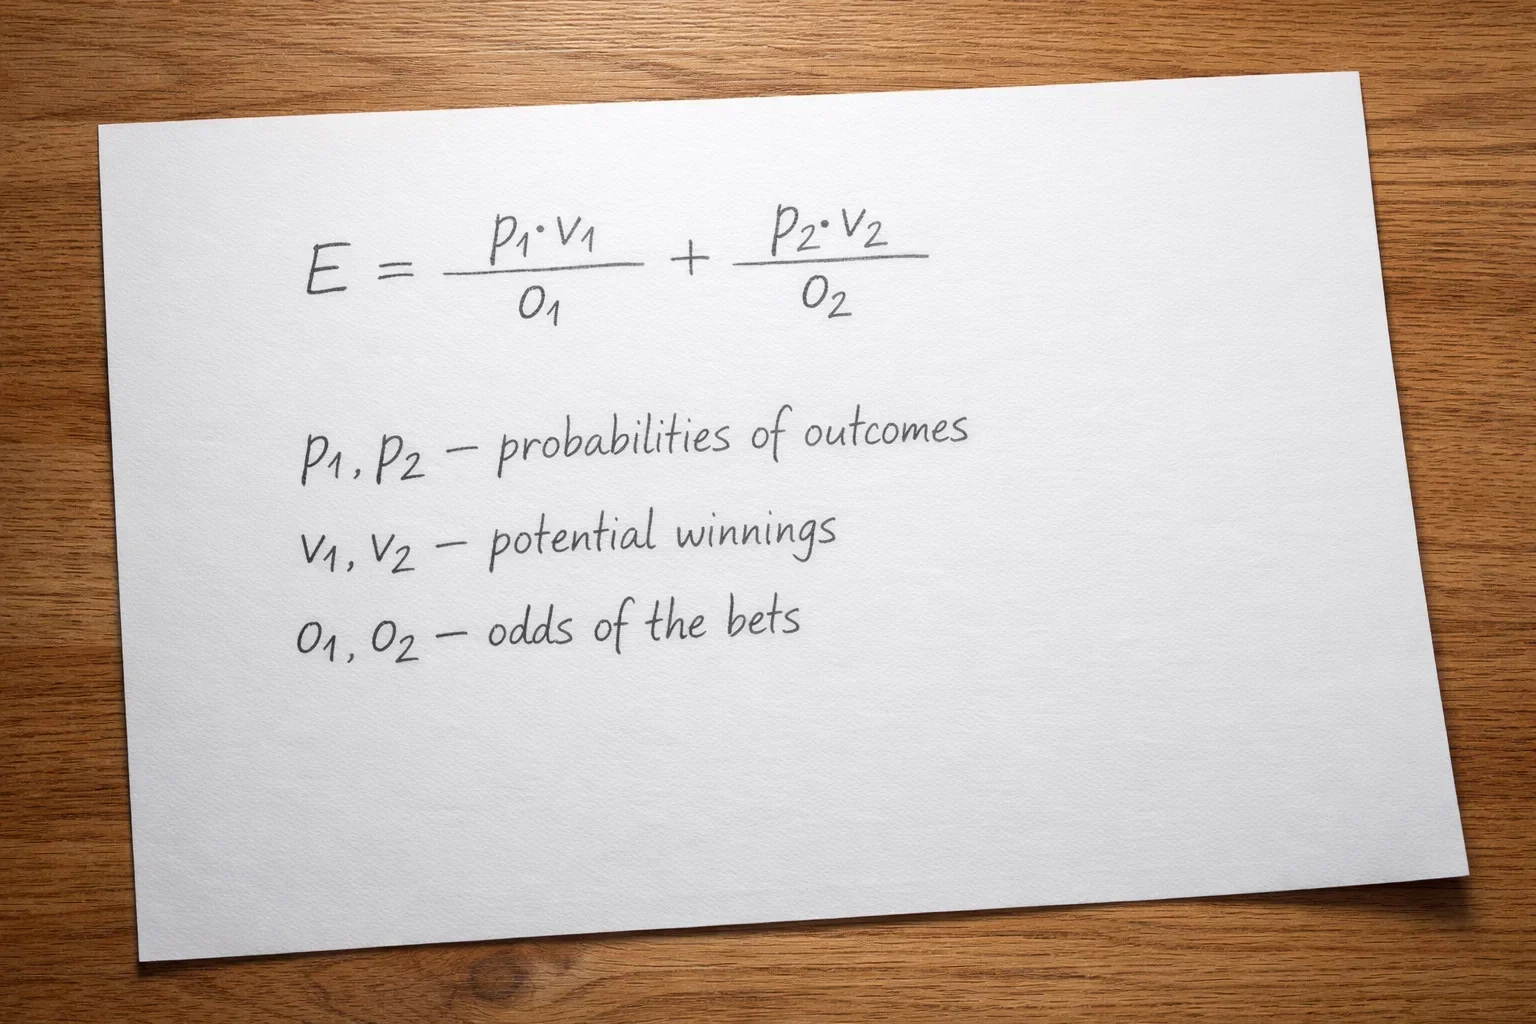 E = p₁·v₁/o₁ + p₂·v₂/o₂
p₁, p₂ — probabilities of outcomes
v₁, v₂ — potential winnings
o₁, o₂ — odds of the bets